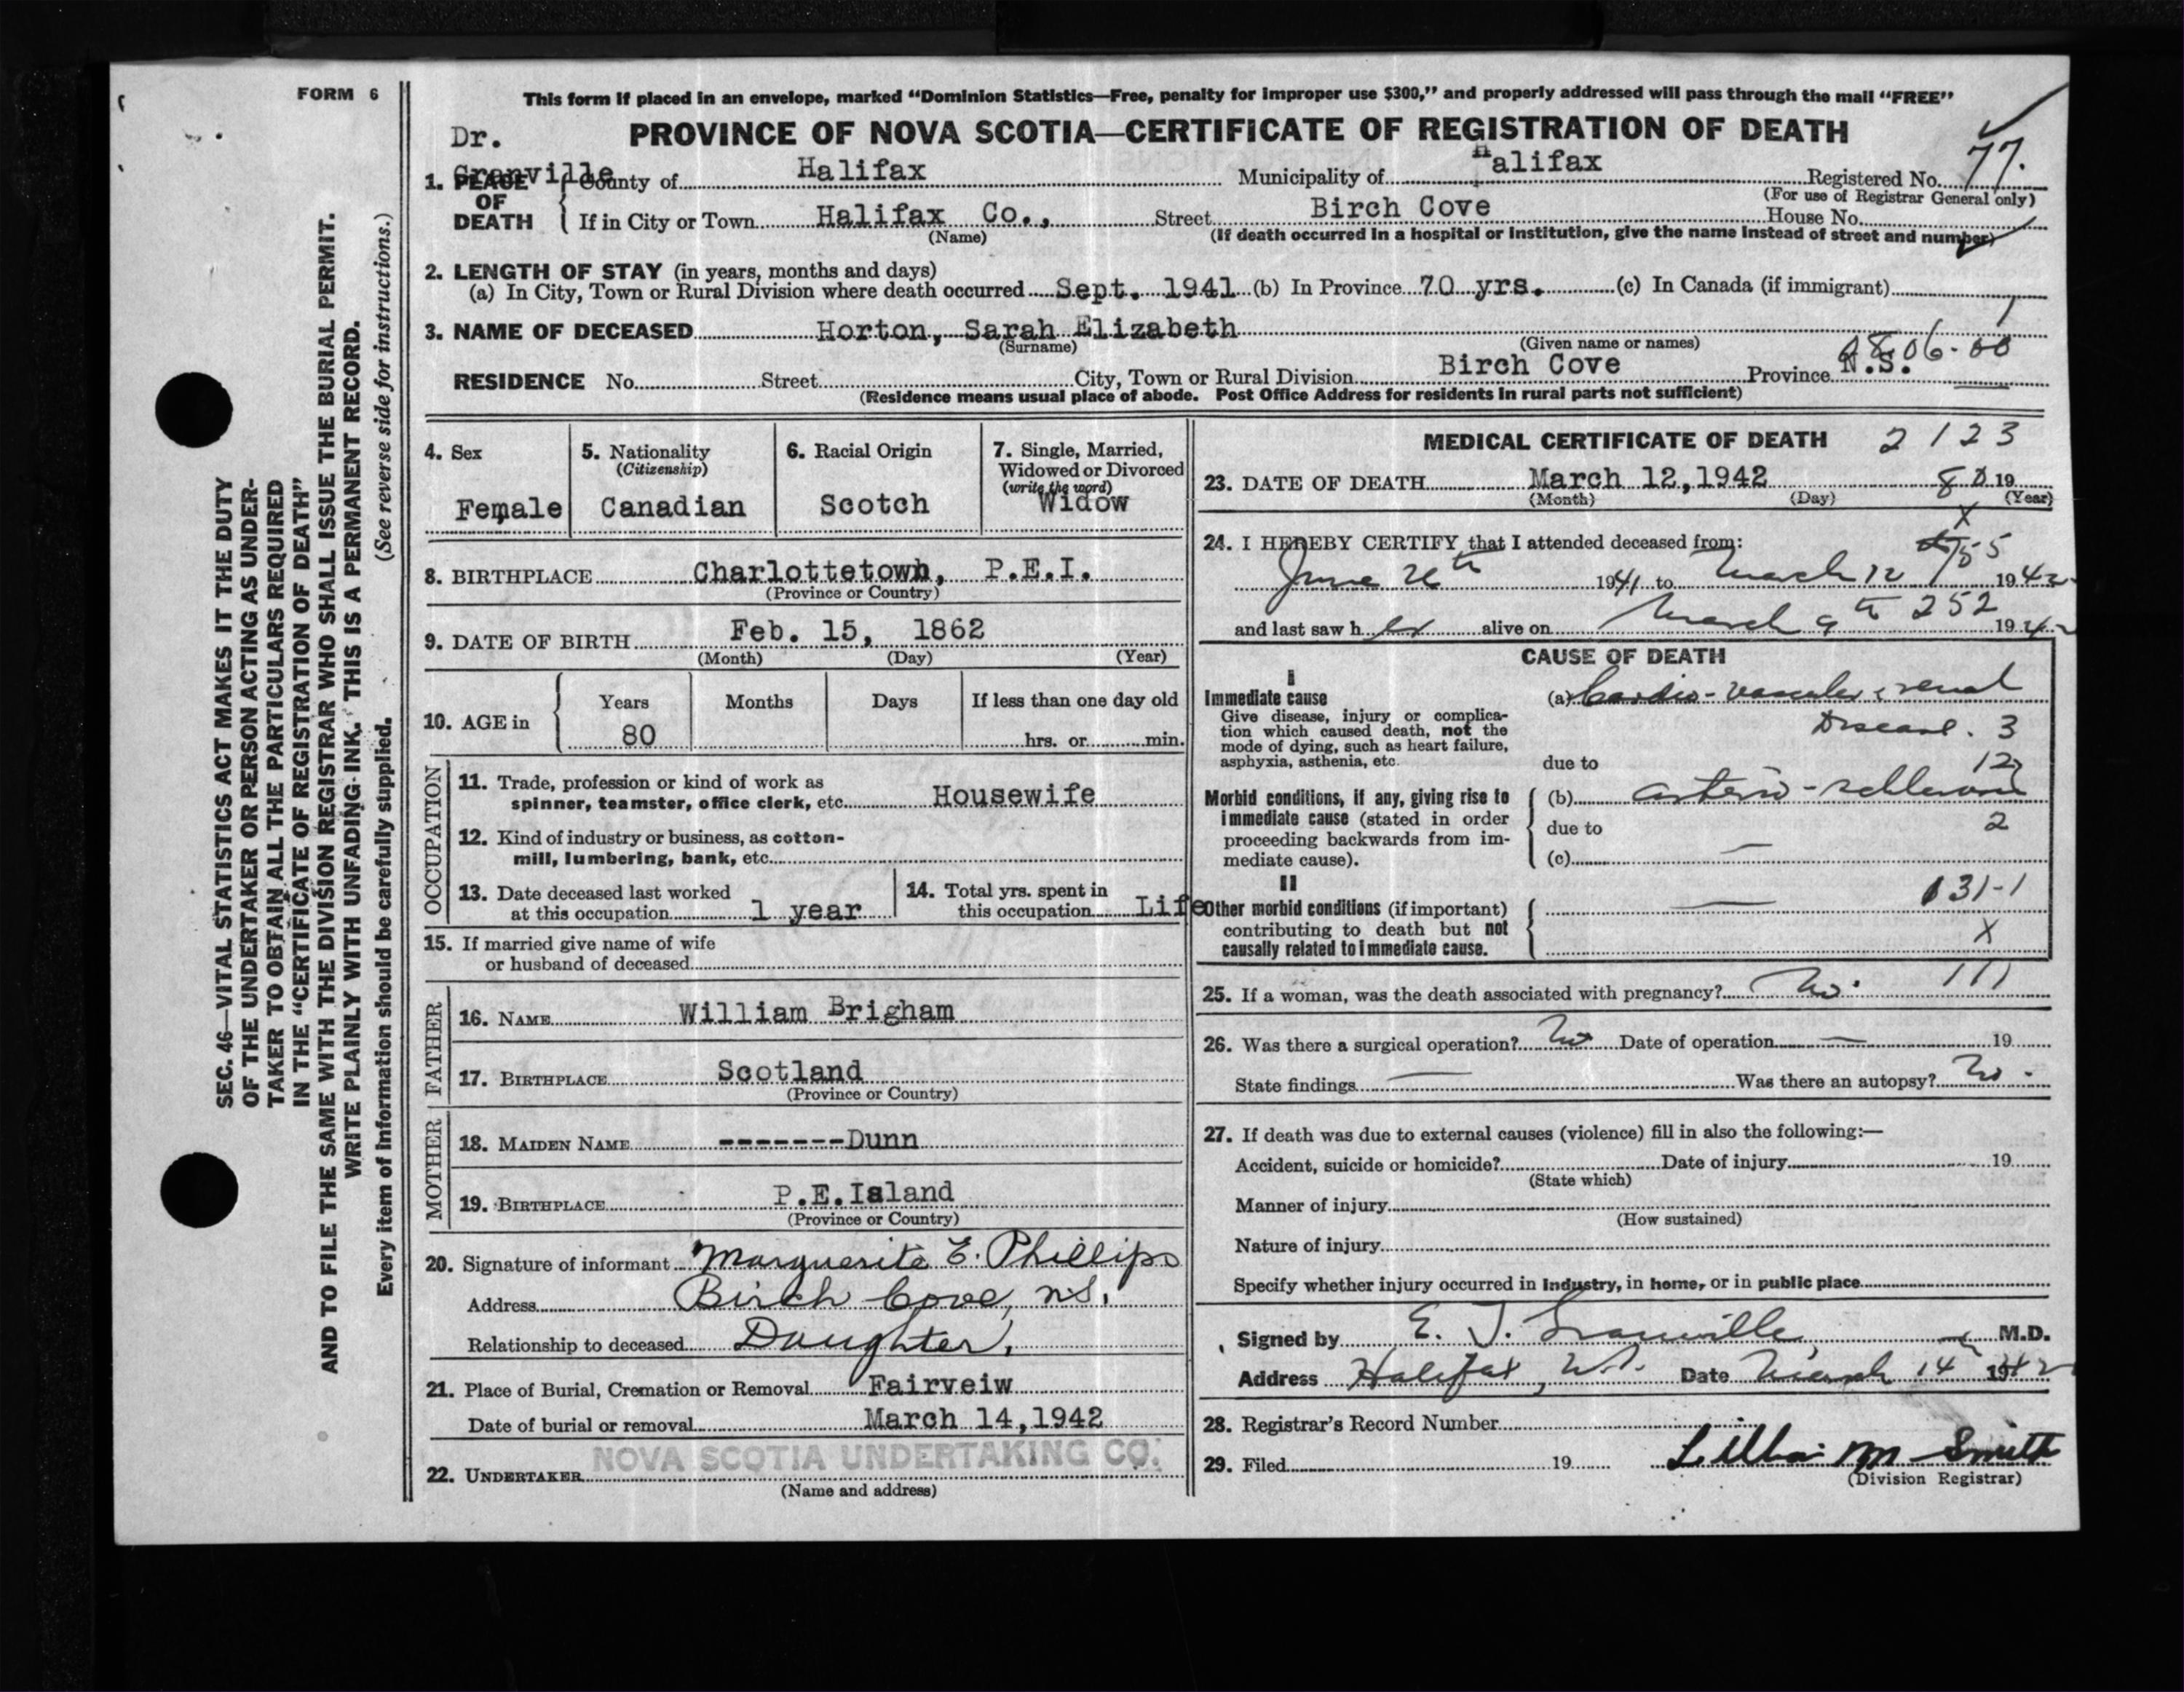 FORM 6
This form if placed in an envelope, marked “Dominion Statistics—Free, penalty for improper use $300,” and properly addressed will pass through the mail “FREE”
Dr.
Granville
PROVINCE OF NOVA SCOTIA—CERTIFICATE OF REGISTRATION OF DEATH
1. PLACE OF DEATH
County of Halifax Municipality of Halifax Registered No. 77.
(For use of Registrar General only)
If in City or Town Halifax Co., Street Birch Cove House No.
(Name) (If death occurred in a hospital or institution, give the name instead of street and number)
2. LENGTH OF STAY (in years, months and days)
(a) In City, Town or Rural Division where death occurred Sept. 1941 (b) In Province 70 yrs. (c) In Canada (if immigrant)
1
3. NAME OF DECEASED Horton, Sarah Elizabeth
(Surname) (Given name or names)
06-00
RESIDENCE No. Street City, Town or Rural Division Birch Cove Province N.S.
(Residence means usual place of abode. Post Office Address for residents in rural parts not sufficient)
4. Sex
Female
5. Nationality
(Citizenship)
Canadian
6. Racial Origin
Scotch
7. Single, Married,
Widowed or Divorced
(write the word)
Widow
8. BIRTHPLACE Charlottetown, P.E.I.
(Province or Country)
9. DATE OF BIRTH Feb. 15, 1862
(Month) (Day) (Year)
10. AGE in
Years Months Days If less than one day old
80 hrs. or min.
OCCUPATION
11. Trade, profession or kind of work as
spinner, teamster, office clerk, etc. Housewife
12. Kind of industry or business, as cotton-
mill, lumbering, bank, etc.
13. Date deceased last worked
at this occupation 1 year
14. Total yrs. spent in
this occupation Life
15. If married give name of wife
or husband of deceased
FATHER
16. NAME William Brigham
17. BIRTHPLACE Scotland
(Province or Country)
MOTHER
18. MAIDEN NAME -------Dunn
19. BIRTHPLACE P.E.Island
(Province or Country)
20. Signature of informant Marguerite E. Phillips
Address Birch Cove, N.S.
Relationship to deceased Daughter.
21. Place of Burial, Cremation or Removal Fairveiw
Date of burial or removal March 14,1942
22. UNDERTAKER NOVA SCOTIA UNDERTAKING CO.
(Name and address)
MEDICAL CERTIFICATE OF DEATH 2123
23. DATE OF DEATH March 12,1942 80 19
(Month) (Day) (Year)
X
24. I HEREBY CERTIFY that I attended deceased from:
55
June 26th 1941 to March 12 1942
252
and last saw her alive on March 9th 1942
CAUSE OF DEATH
I
Immediate cause
Give disease, injury or complica-
tion which caused death, not the
mode of dying, such as heart failure,
asphyxia, asthenia, etc.
(a) Cardio-vascular-renal
Disease. 3
due to 12
Morbid conditions, if any, giving rise to
immediate cause (stated in order
proceeding backwards from im-
mediate cause).
(b) arterio-sclerosis
due to 2
(c) —
II
Other morbid conditions (if important)
contributing to death but not
causally related to immediate cause.
131-1
X
25. If a woman, was the death associated with pregnancy? No. 111
26. Was there a surgical operation? No Date of operation — 19
State findings — Was there an autopsy? No.
27. If death was due to external causes (violence) fill in also the following:—
Accident, suicide or homicide? Date of injury 19
(State which)
Manner of injury
(How sustained)
Nature of injury
Specify whether injury occurred in industry, in home, or in public place
Signed by E. J. Granville M.D.
Address Halifax, N.S. Date March 14th 1942
28. Registrar's Record Number
29. Filed 19 Lillia M Smith
(Division Registrar)
SEC. 46—VITAL STATISTICS ACT MAKES IT THE DUTY
OF THE UNDERTAKER OR PERSON ACTING AS UNDER-
TAKER TO OBTAIN ALL THE PARTICULARS REQUIRED
IN THE “CERTIFICATE OF REGISTRATION OF DEATH”
AND TO FILE THE SAME WITH THE DIVISION REGISTRAR WHO SHALL ISSUE THE BURIAL PERMIT.
WRITE PLAINLY WITH UNFADING INK. THIS IS A PERMANENT RECORD.
Every item of information should be carefully supplied. (See reverse side for instructions.)